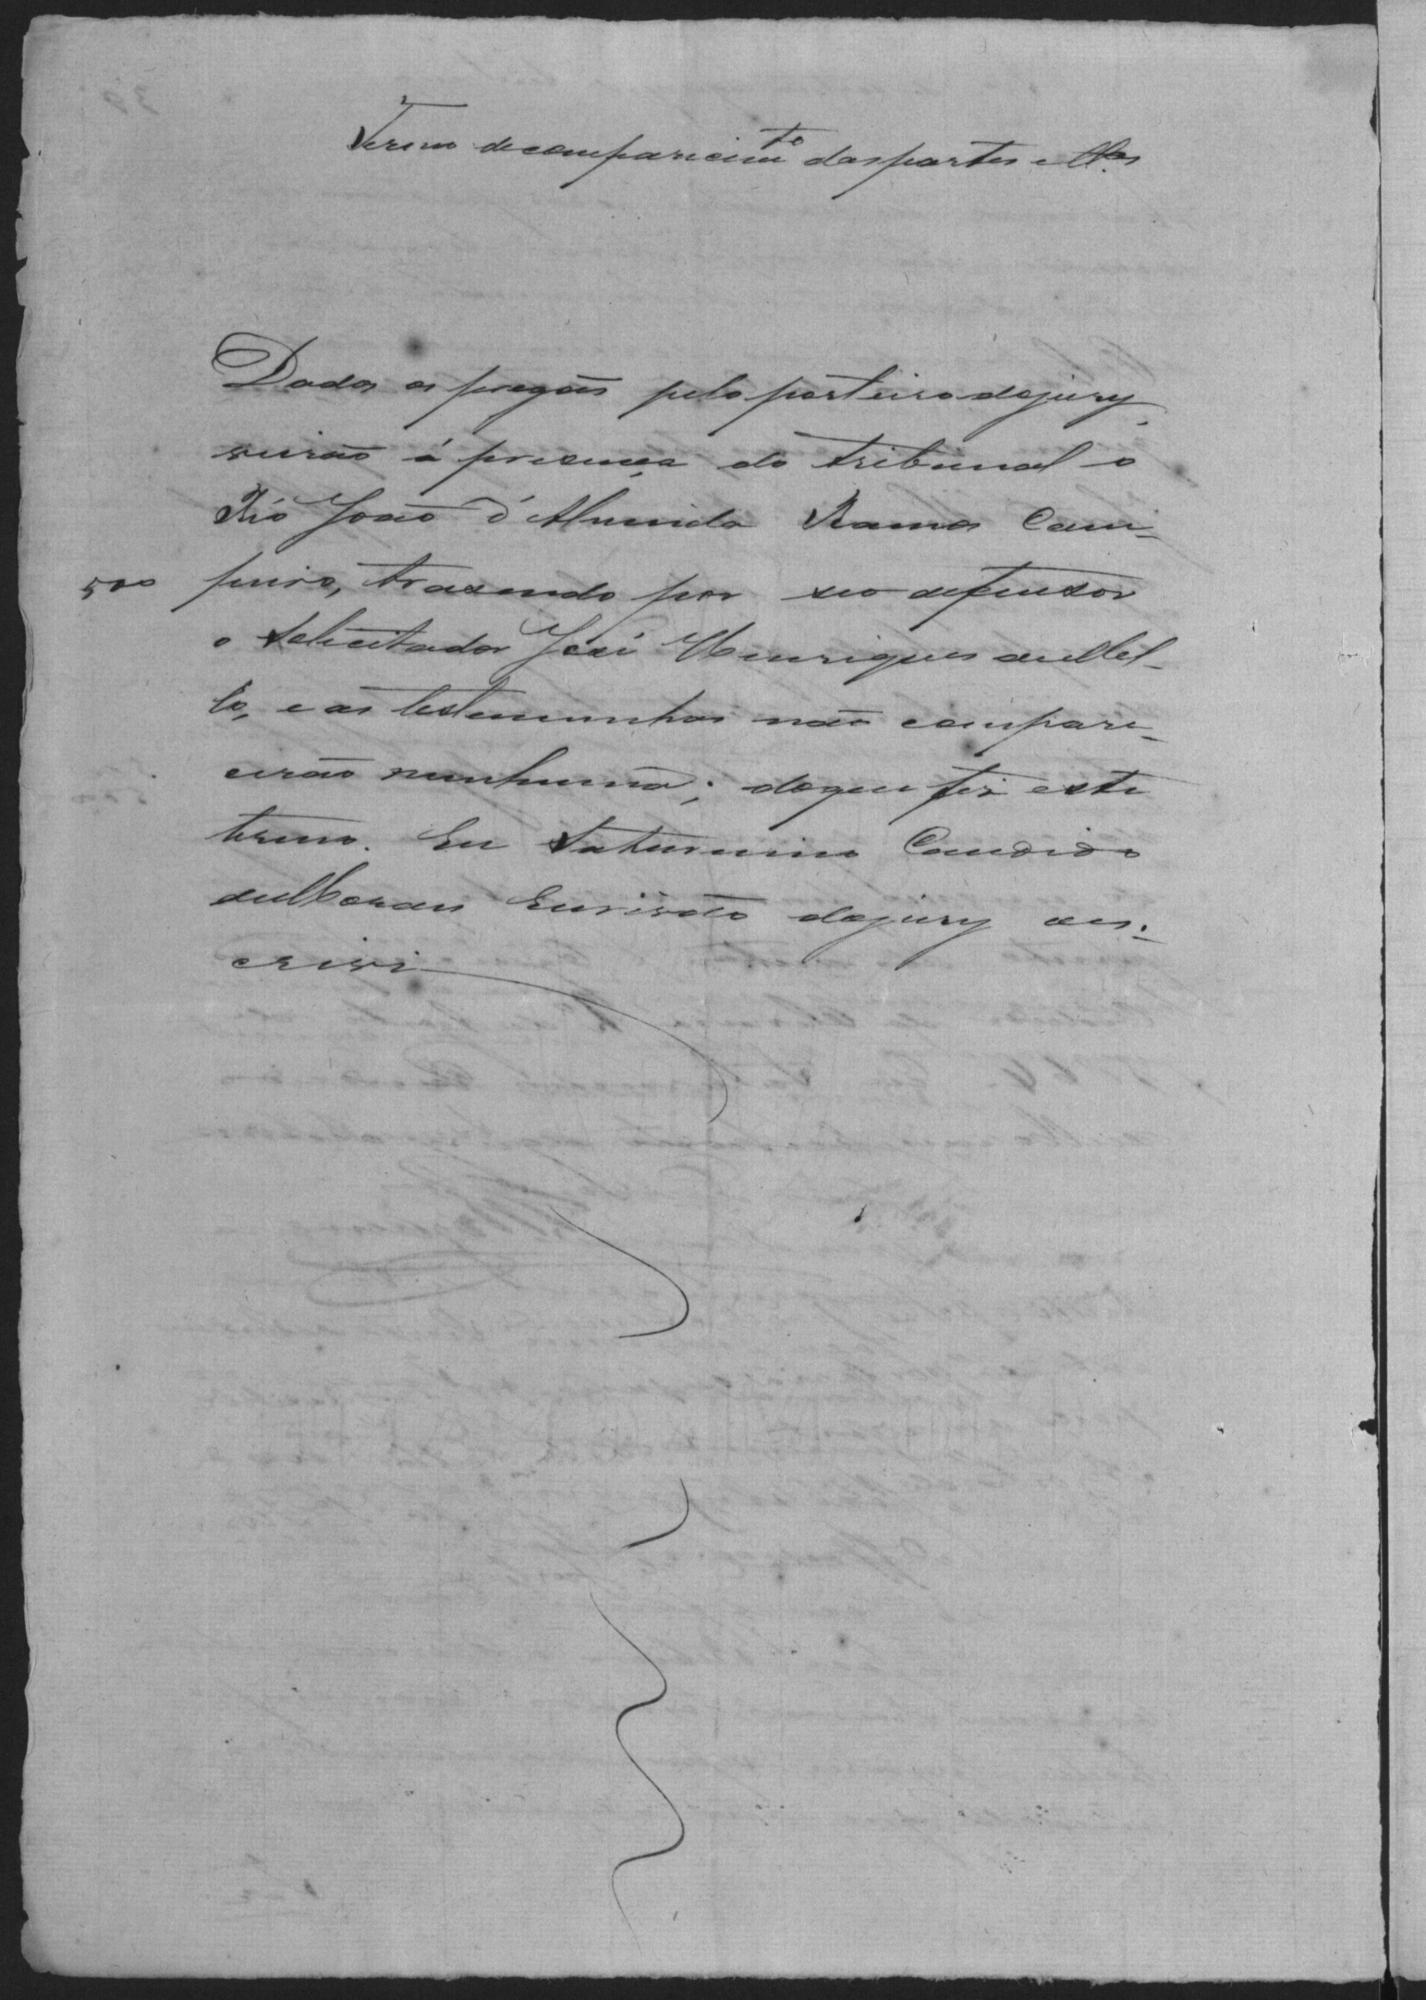 Termo de comparecim.to das partes e tt.as
Dados os pregões pelo porteiro do jury,
virão á presença do tribunal o
Réo João d'Almeida Ramos Cam-
500 peiro, trasendo por seo defensor
o Solicitador José Henriques de Mel-
lo, e as testemunhas não compare-
cerão nenhuma; do que fiz este
termo. Eu Saturnino Candido
de Moraes Escrivão do jury o es-
crivi